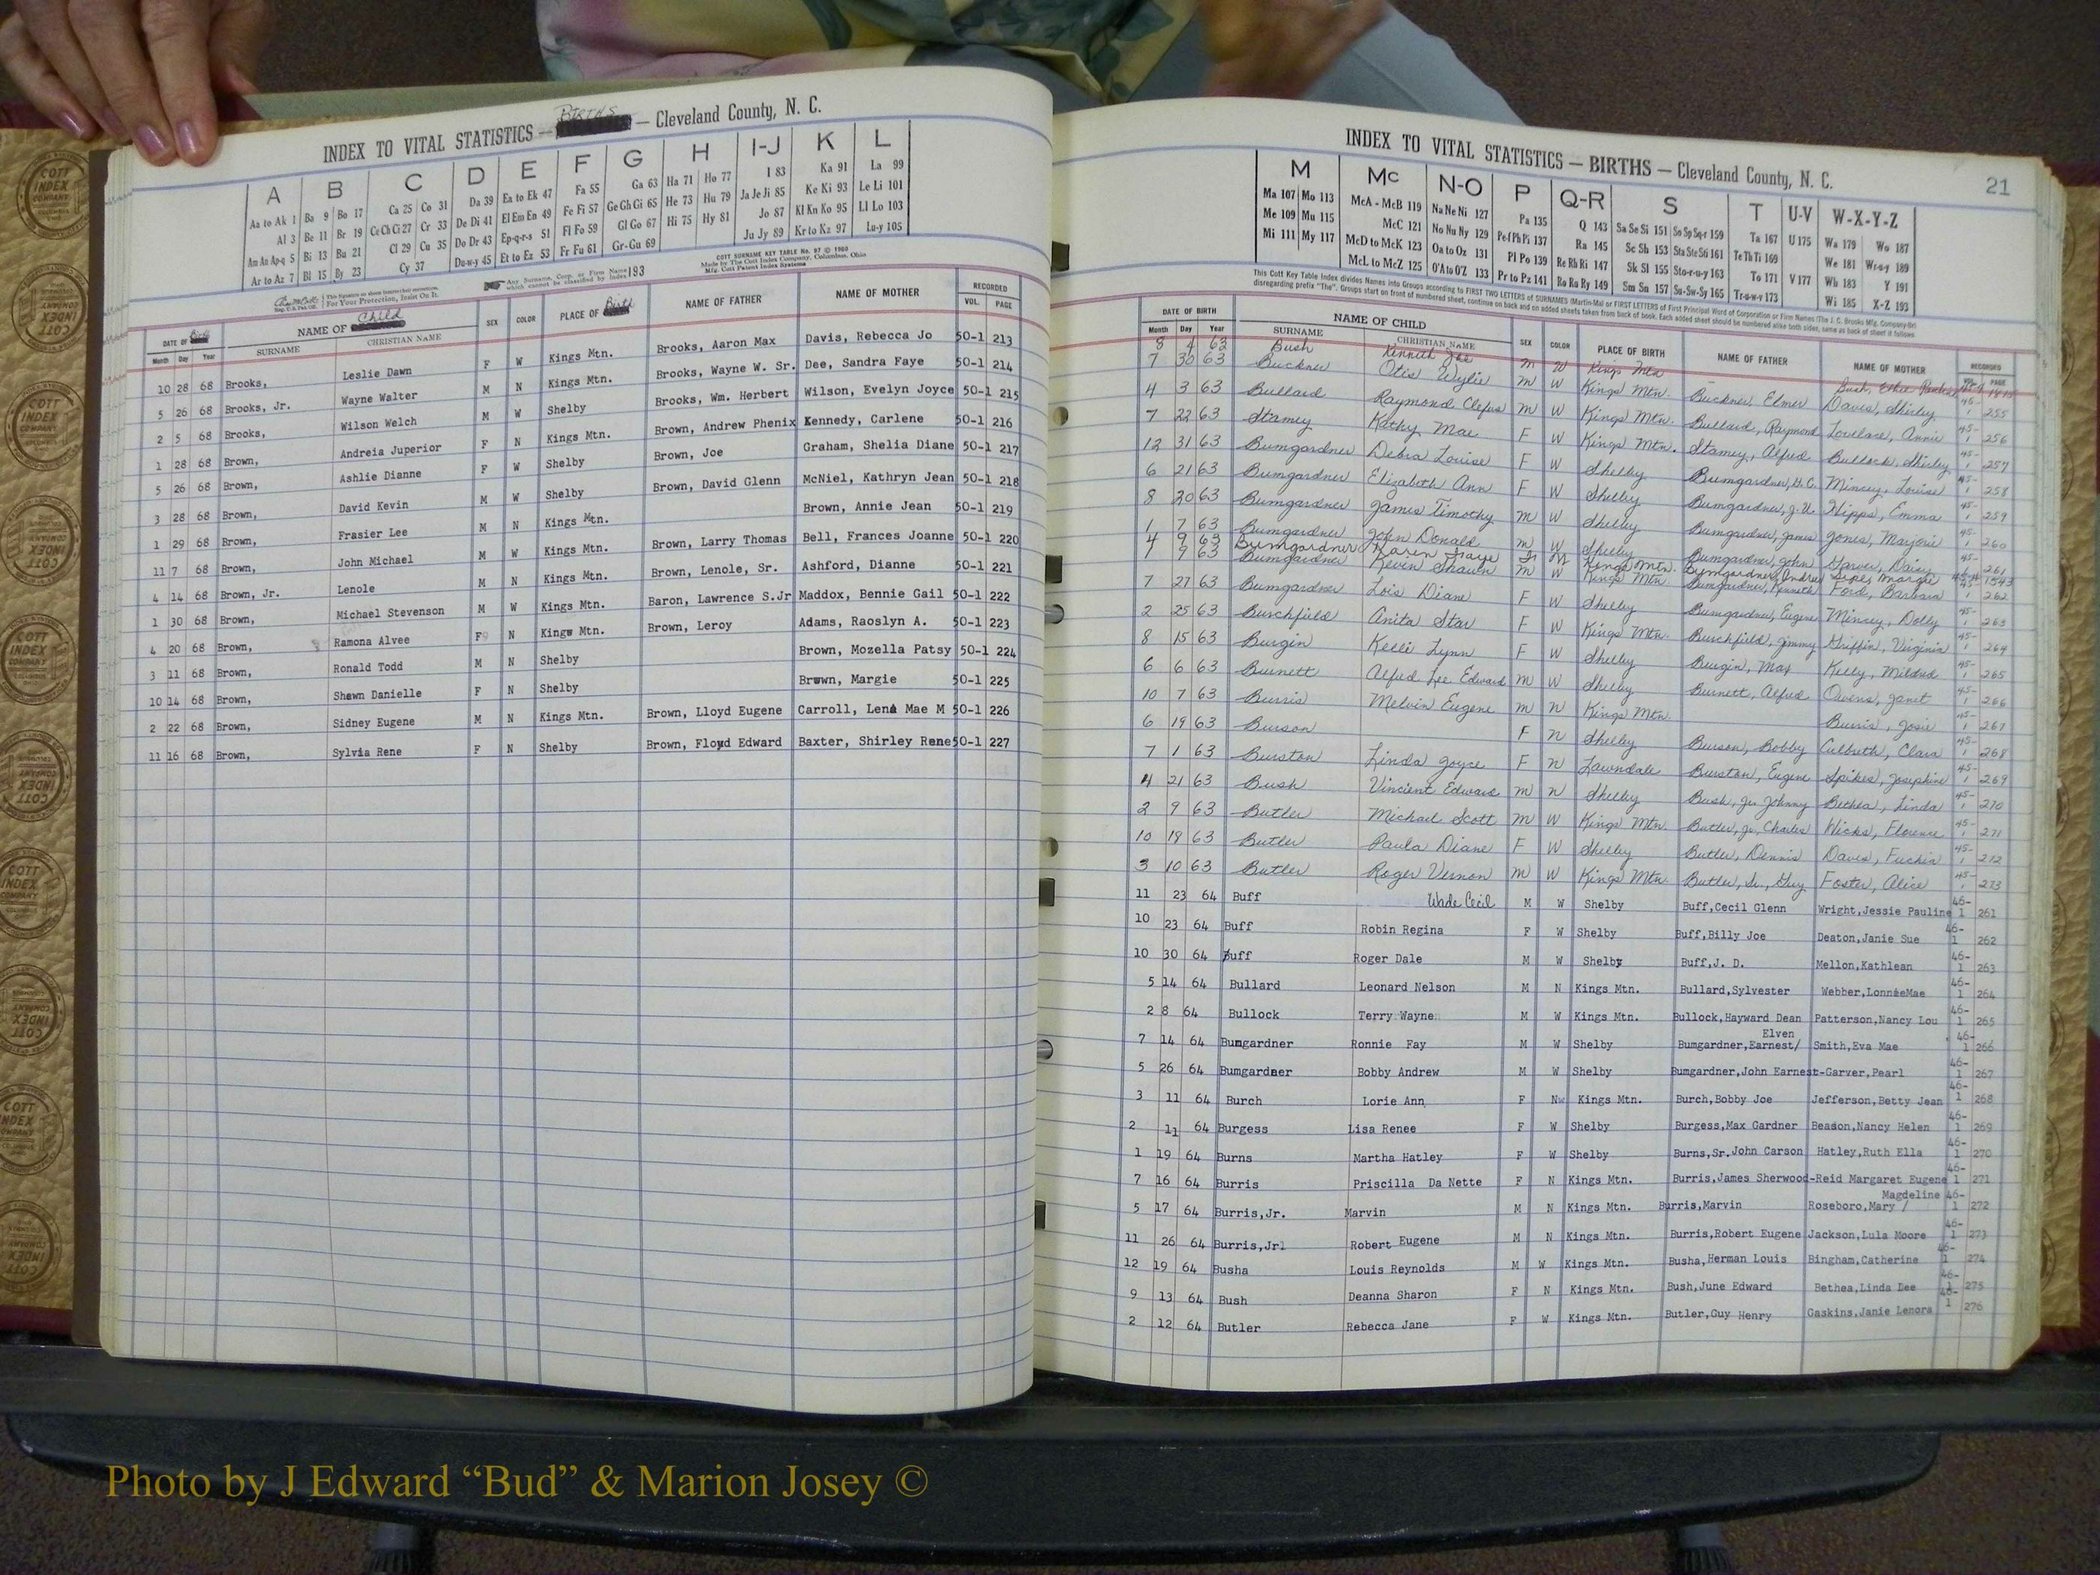 BIRTHS
INDEX TO VITAL STATISTICS — — Cleveland County, N. C.
A B C D E F G H I-J K L
Aa to Ak 1 Ba 9 Bo 17 Ca 25 Co 31 Da 39 Ea to Ek 47 Fa 55 Ga 63 Ha 71 Ho 77 I 83 Ka 91 La 99
Al 3 Be 11 Br 19 Ce Ch Ci 27 Cr 33 De Di 41 El Em En 49 Fe Fi 57 Ge Gh Gi 65 He 73 Hu 79 Ja Je Ji 85 Ke Ki 93 Le Li 101
Am An Ap-q 5 Bi 13 Bu 21 Cl 29 Cu 35 Do Dr 43 Ep-q-r-s 51 Fl Fo 59 Gl Go 67 Hi 75 Hy 81 Jo 87 Kl Kn Ko 95 Ll Lo 103
Ar to Az 7 Bl 15 By 23 Cy 37 Du-w-y 45 Et to Ez 53 Fr Fu 61 Gr-Gu 69 Ju Jy 89 Kr to Kz 97 Lu-y 105
COTT SURNAME KEY TABLE No. 97 © 1960
Made by The Cott Index Company, Columbus, Ohio
Mfg. Cott Patent Index Systems
For Your Protection, Insist On It.
Any Surname, Corp. or Firm Name which cannot be classified by Index 193
DATE OF Birth NAME OF Child SEX COLOR PLACE OF Birth NAME OF FATHER NAME OF MOTHER RECORDED
Month Day Year SURNAME CHRISTIAN NAME VOL. PAGE
10 28 68 Brooks, Leslie Dawn F W Kings Mtn. Brooks, Aaron Max Davis, Rebecca Jo 50-1 213
5 26 68 Brooks, Jr. Wayne Walter M N Kings Mtn. Brooks, Wayne W. Sr. Dee, Sandra Faye 50-1 214
2 5 68 Brooks, Wilson Welch M W Shelby Brooks, Wm. Herbert Wilson, Evelyn Joyce 50-1 215
1 28 68 Brown, Andreia Juperior F N Kings Mtn. Brown, Andrew Phenix Kennedy, Carlene 50-1 216
5 26 68 Brown, Ashlie Dianne F W Shelby Brown, Joe Graham, Shelia Diane 50-1 217
3 28 68 Brown, David Kevin M W Shelby Brown, David Glenn McNiel, Kathryn Jean 50-1 218
1 29 68 Brown, Frasier Lee M N Kings Mtn. Brown, Annie Jean 50-1 219
11 7 68 Brown, John Michael M W Kings Mtn. Brown, Larry Thomas Bell, Frances Joanne 50-1 220
4 14 68 Brown, Jr. Lenole M N Kings Mtn. Brown, Lenole, Sr. Ashford, Dianne 50-1 221
1 30 68 Brown, Michael Stevenson M W Kings Mtn. Baron, Lawrence S.Jr Maddox, Bennie Gail 50-1 222
4 20 68 Brown, Ramona Alvee F N Kings Mtn. Brown, Leroy Adams, Raoslyn A. 50-1 223
3 11 68 Brown, Ronald Todd M N Shelby Brown, Mozella Patsy 50-1 224
10 14 68 Brown, Shawn Danielle F N Shelby Brown, Margie 50-1 225
2 22 68 Brown, Sidney Eugene M N Kings Mtn. Brown, Lloyd Eugene Carroll, Lena Mae M 50-1 226
11 16 68 Brown, Sylvia Rene F N Shelby Brown, Floyd Edward Baxter, Shirley Rene 50-1 227
INDEX TO VITAL STATISTICS — BIRTHS — Cleveland County, N. C. 21
M Mc N-O P Q-R S T U-V W-X-Y-Z
Ma 107 Mo 113 McA - McB 119 Na Ne Ni 127 Pa 135 Q 143 Sa Se Si 151 So Sp Sq-r 159 Ta 167 U 175 Wa 179 Wo 187
Me 109 Mu 115 McC 121 No Nu Ny 129 Pe-f Ph Pi 137 Ra 145 Sc Sh 153 Sta Ste Sti 161 Te Th Ti 169 We 181 Wr-u-y 189
Mi 111 My 117 McD to McK 123 Oa to Oz 131 Pl Po 139 Re Rh Ri 147 Sk Sl 155 Sto-r-u-y 163 To 171 V 177 Wh 183 Y 191
McL to McZ 125 O'A to O'Z 133 Pr to Pz 141 Ro Ru Ry 149 Sm Sn 157 Su-Sw-Sy 165 Tr-u-w-y 173 Wi 185 X-Z 193
This Cott Key Table Index divides Names into Groups according to FIRST TWO LETTERS of SURNAMES (Martin-Ma) or FIRST LETTERS of First Principal Word of Corporation or Firm Names (The J. C. Brooks Mfg. Company-Br)
disregarding prefix "The". Groups start on front of numbered sheet, continue on back and on added sheets taken from back of book. Each added sheet should be numbered alike both sides, same as back of sheet it follows.
DATE OF BIRTH NAME OF CHILD SEX COLOR PLACE OF BIRTH NAME OF FATHER NAME OF MOTHER RECORDED
Month Day Year SURNAME CHRISTIAN NAME PAGE
8 4 63 Bush Kenneth Joe M W Kings Mtn
7 30 63 Buckner Otis Wylie M W Kings Mtn. Buckner Elmer Davis, Shirley 45-1 255
4 3 63 Bullard Raymond Clefus M W Kings Mtn. Bullard, Raymond Lovelace, Annie 45-1 256
7 22 63 Stamey Kathy Mae F W Kings Mtn. Stamey, Alfred Bullock, Shirley 45-1 257
12 31 63 Bumgardner Debra Louise F W Shelby Bumgardner, H.C. Mincey, Louise 45-1 258
6 21 63 Bumgardner Elizabeth Ann F W Shelby Bumgardner, J.V. Hipps, Emma 45-1 259
8 20 63 Bumgardner James Timothy M W Shelby Bumgardner, James Jones, Marjorie 45-1 260
1 7 63 Bumgardner John Donald M W Shelby Bumgardner, John Garver, Daisy 45-1 261
4 9 63 Bumgardner Karen Faye F W Kings Mtn. Bumgardner, Andrew Sipes, Margie 1543
7 7 63 Bumgardner Kevin Shawn M W Kings Mtn Bumgardner, Kenneth Ford, Barbara 262
7 27 63 Bumgardner Lois Diane F W Shelby Bumgardner, Eugene Mincey, Dolly 45-1 263
2 25 63 Burchfield Anita Star F W Kings Mtn. Burchfield, Jimmy Griffin, Virginia 45-1 264
8 15 63 Burgin Kelli Lynn F W Shelby Burgin, Max Kelly, Mildred 45-1 265
6 6 63 Burnett Alfred Lee Edward M W Shelby Burnett, Alfred Owens, Janet 45-1 266
10 7 63 Burris Melvin Eugene M N Kings Mtn. Burris, Josie 45-1 267
6 19 63 Burson F N Shelby Burson, Bobby Culbreth, Clara 45-1 268
7 1 63 Burston Linda Joyce F N Lawndale Burston, Eugene Spikes, Josephine 45-1 269
4 21 63 Bush Vincient Edward M N Shelby Bush, Jr. Johnny Bethea, Linda 45-1 270
2 9 63 Butler Michael Scott M W Kings Mtn. Butler, Jr., Charles Hicks, Florence 45-1 271
10 18 63 Butler Paula Diane F W Shelby Butler, Dennis Davis, 45-1 272
3 10 63 Butler Roger Vernon M W Kings Mtn. Butler, Sr., Guy Foster, Alice 45-1 273
11 23 64 Buff Wade Cecil M W Shelby Buff,Cecil Glenn Wright,Jessie Pauline 46-1 261
10 23 64 Buff Robin Regina F W Shelby Buff,Billy Joe Deaton,Janie Sue 46-1 262
10 30 64 Buff Roger Dale M W Shelby Buff,J. D. Mellon,Kathlean 46-1 263
5 14 64 Bullard Leonard Nelson M N Kings Mtn. Bullard,Sylvester Webber,LonnieMae 46-1 264
2 8 64 Bullock Terry Wayne M W Kings Mtn. Bullock,Hayward Dean Patterson,Nancy Lou 46-1 265
Elven
7 14 64 Bumgardner Ronnie Fay M W Shelby Bumgardner,Earnest/ Smith,Eva Mae 46-1 266
5 26 64 Bumgardner Bobby Andrew M W Shelby Bumgardner,John Earnest-Garver,Pearl 46-1 267
3 11 64 Burch Lorie Ann F Nw Kings Mtn. Burch,Bobby Joe Jefferson,Betty Jean 46-1 268
2 11 64 Burgess Lisa Renee F W Shelby Burgess,Max Gardner Beason,Nancy Helen 46-1 269
1 19 64 Burns Martha Hatley F W Shelby Burns,Sr.John Carson Hatley,Ruth Ella 46-1 270
7 16 64 Burris Priscilla Da Nette F N Kings Mtn. Burris,James Sherwood-Reid Margaret Eugene 46-1 271
Magdeline
5 17 64 Burris,Jr. Marvin M N Kings Mtn. Burris,Marvin Roseboro,Mary / 46-1 272
11 26 64 Burris,Jr Robert Eugene M N Kings Mtn. Burris,Robert Eugene Jackson,Lula Moore 46-1 273
12 19 64 Busha Louis Reynolds M W Kings Mtn. Busha,Herman Louis Bingham,Catherine 46-1 274
9 13 64 Bush Deanna Sharon F N Kings Mtn. Bush,June Edward Bethea,Linda Dee 46-1 275
2 12 64 Butler Rebecca Jane F W Kings Mtn. Butler,Guy Henry Gaskins,Janie Lenora 46-1 276
Photo by J Edward “Bud” & Marion Josey ©